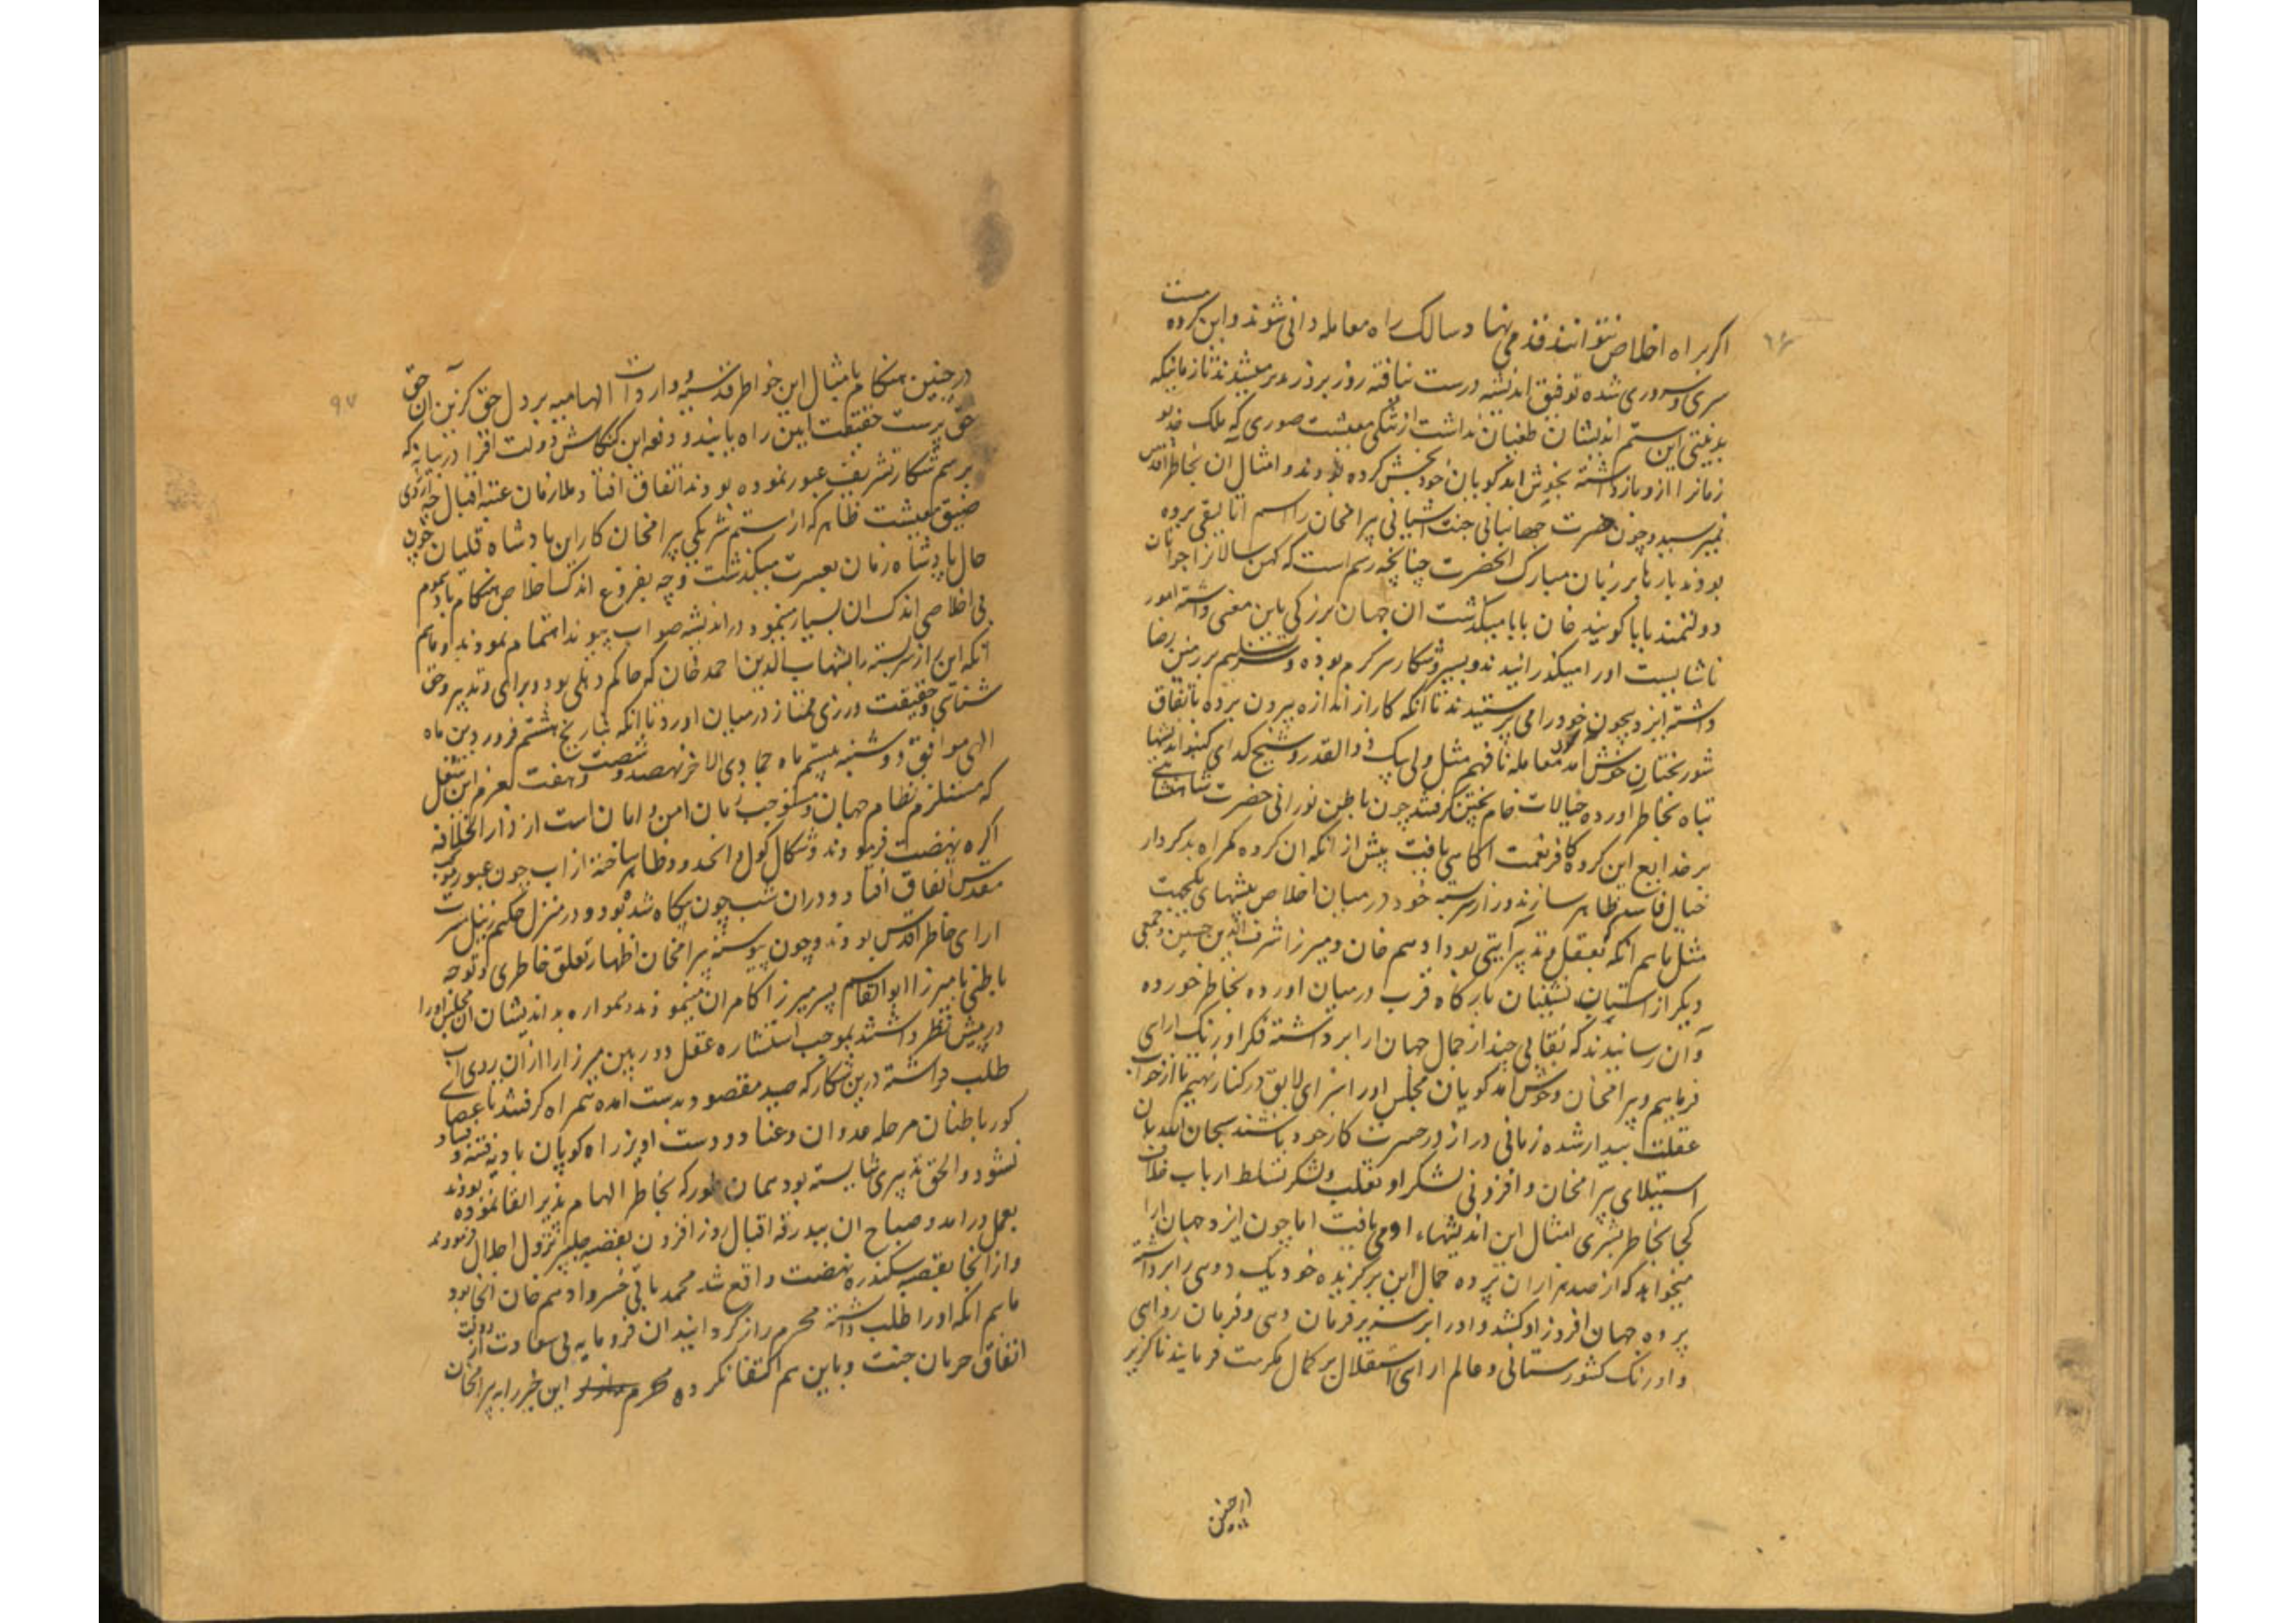 ۹۶
اگر براه اخلاص نتوانند قدمی نهاد سالک راه معامله دانی شوند و این کرده مست
سری و سروری شده توفیق اندیشه درست نیافته روز بروز بدتر میشدند تا زمانیکه
بدنیتی این ستم اندیشان طغیان نداشت از تنکی معیشت صوری که ملک خدیو
زمانرا ازو بازداشته بخوش امد کویان خود بخش کرده بودند و امثال آن بخاطر اقدس
نمیرسید و چون حضرت جهانبانی جنت اشیانی بیرامخان را اسم اتالیقی برده
بودند بارها بر زبان مبارک انحضرت چنانچه رسم است که کهن سالانرا جوانان
دولتمند بابا کویند خان بابا میکذشت ان جهان بزرکی باین معنی داشته امور
ناشایست او را میکذرانیدند و بسیر و شکار سرکرم بوده و سر تسلیم بر زمین رضا
داشته ایزد بیچون خود را می پرستیدند تا انکه کار از اندازه بیرون برده باتفاق
شوربختان خوش امد معامله نافهم مثل ولی بیک ذوالقدر و شیخ کدای کنبو اندیشها
تباه بخاطر اورده خیالات خام پختن کرفتند چون باطن نورانی حضرت شاهنشاهی
بر خدایع این کروه کافر نعمت اکاهی یافت پیش از انکه ان کروه کمراه بدکردار
خیال فاسد ظاهر سازند و راز سربسته خود در میان اخلاص پیشهای یکجهت
مثل ماهم انکه که بعقل و تدبیر آیتی بود و ادهم خان و میرزا شرف الدین حسین و جمعی
دیکر از استان نشینان بارکاه قرب درمیان اورده بخاطر خورده
دان رسانیدند که نقابی چند از جمال جهان ارا برداشته فکر اورنک ارای
فرماییم و بیرامخان و خوش امد کویان مجلس او را سزای لایق در کنار نهیم تا از خواب
غفلت بیدار شده زمانی دراز در حسرت کار خود باشند سبحان الله با ان
استیلای بیرامخان و افزونی لشکر او و تغلب و لشکر تسلط ارباب خلاف
کجا بخاطر بشری امثال این اندیشهاء او می یافت اما چون ایزد جهان ارا
میخواهد که از صد هزاران پرده جمال این برکزیده خود یک دو سی را برداشته
پرده جهان افروز او کشد و او را بر سریر فرمان دهی و فرمان روایی
و اورنک کشورستانی و عالم ارای استقلال بر کمال مکرمت فرمایند ناکزیر
در چنین
۹۷
در چنین هنکام بامثال این خواطر قدسیه و واردات الهامیه بر دل حق کزین آن حق
حق پرست حقیقت ایین راه یابند و وقوع این کنکاش دولت افزا در بیانه که
برسم شکار تشریف عبور نموده بودند اتفاق افتاد و ملازمان عتبه اقبال چه از روی
ضیق معیشت ظاهر که از ستم شریکی بیرامخان کار این پادشاه قلیان خون
حال پادشاه زمان بعسرت میکذشت و چه بفروغ اندک اخلاص هنکام با هجوم
بی اخلاصی اندک ان بسیار مینمود در اندیشه صواب پیوند اهتمام نمودند و ماهم
انکه این راز سربسته را بشهاب الدین احمد خان که حاکم دهلی بود و برای و تدبیر و حق
شناسی و حقیقت ورزی ممتاز درمیان اورد تا انکه بتاریخ هشتم فروردین ماه
الهی موافق دوشنبه بیستم ماه جمادی الاخر نهصد و شصت و هفت بعزم این شغل
که مستلزم نظام جهان و مستوجب زمان امن و امان است از دارالخلافه
اکره نهضت فرمودند و شکال کول و انحدود ظاهر ساخته از اب جون عبور موکب
مقدس اتفاق افتاد و دران شب چون بیکاه شده بود و در منزل حکیم زنبل مسرت
ارای خاطر اقدس بودند و چون پیوسته بیرامخان اظهار تعلق خاطری و توجه
باطنی با میرزا ابوالقاسم پسر میرزا کامران مینمودند و همواره بداندیشان ان مجلس او را
در پیش نظر داشتند بموجب استشاره عقل دوربین میرزا را از ان روی اب
طلب داشته درین شکار که صید مقصود بدست امده همراه کرفتند تا عصای
کور باطنان مرحله عدوان و عناد و دست اویز راه کویان بادیه فتنه و فساد
نشود و الحق تدبیری شایسته بود همان طور که بخاطر الهام پذیر القا نموده بودند
بعمل درامد و صباح ان ببدرقه اقبال روز افزون بقصبه جلیسر نزول اجلال فرمودند
و از انجا بقصبه سکندره نهضت واقع شد محمد باقی خسرو ادهم خان انجا بود
ماهم انکه او را طلب داشته محرم راز کردانید ان فرومایه بی سعادت از دولت
اتفاق حرمان جست و باین هم اکتفا نکرده محرم این خبر را به بیرامخان